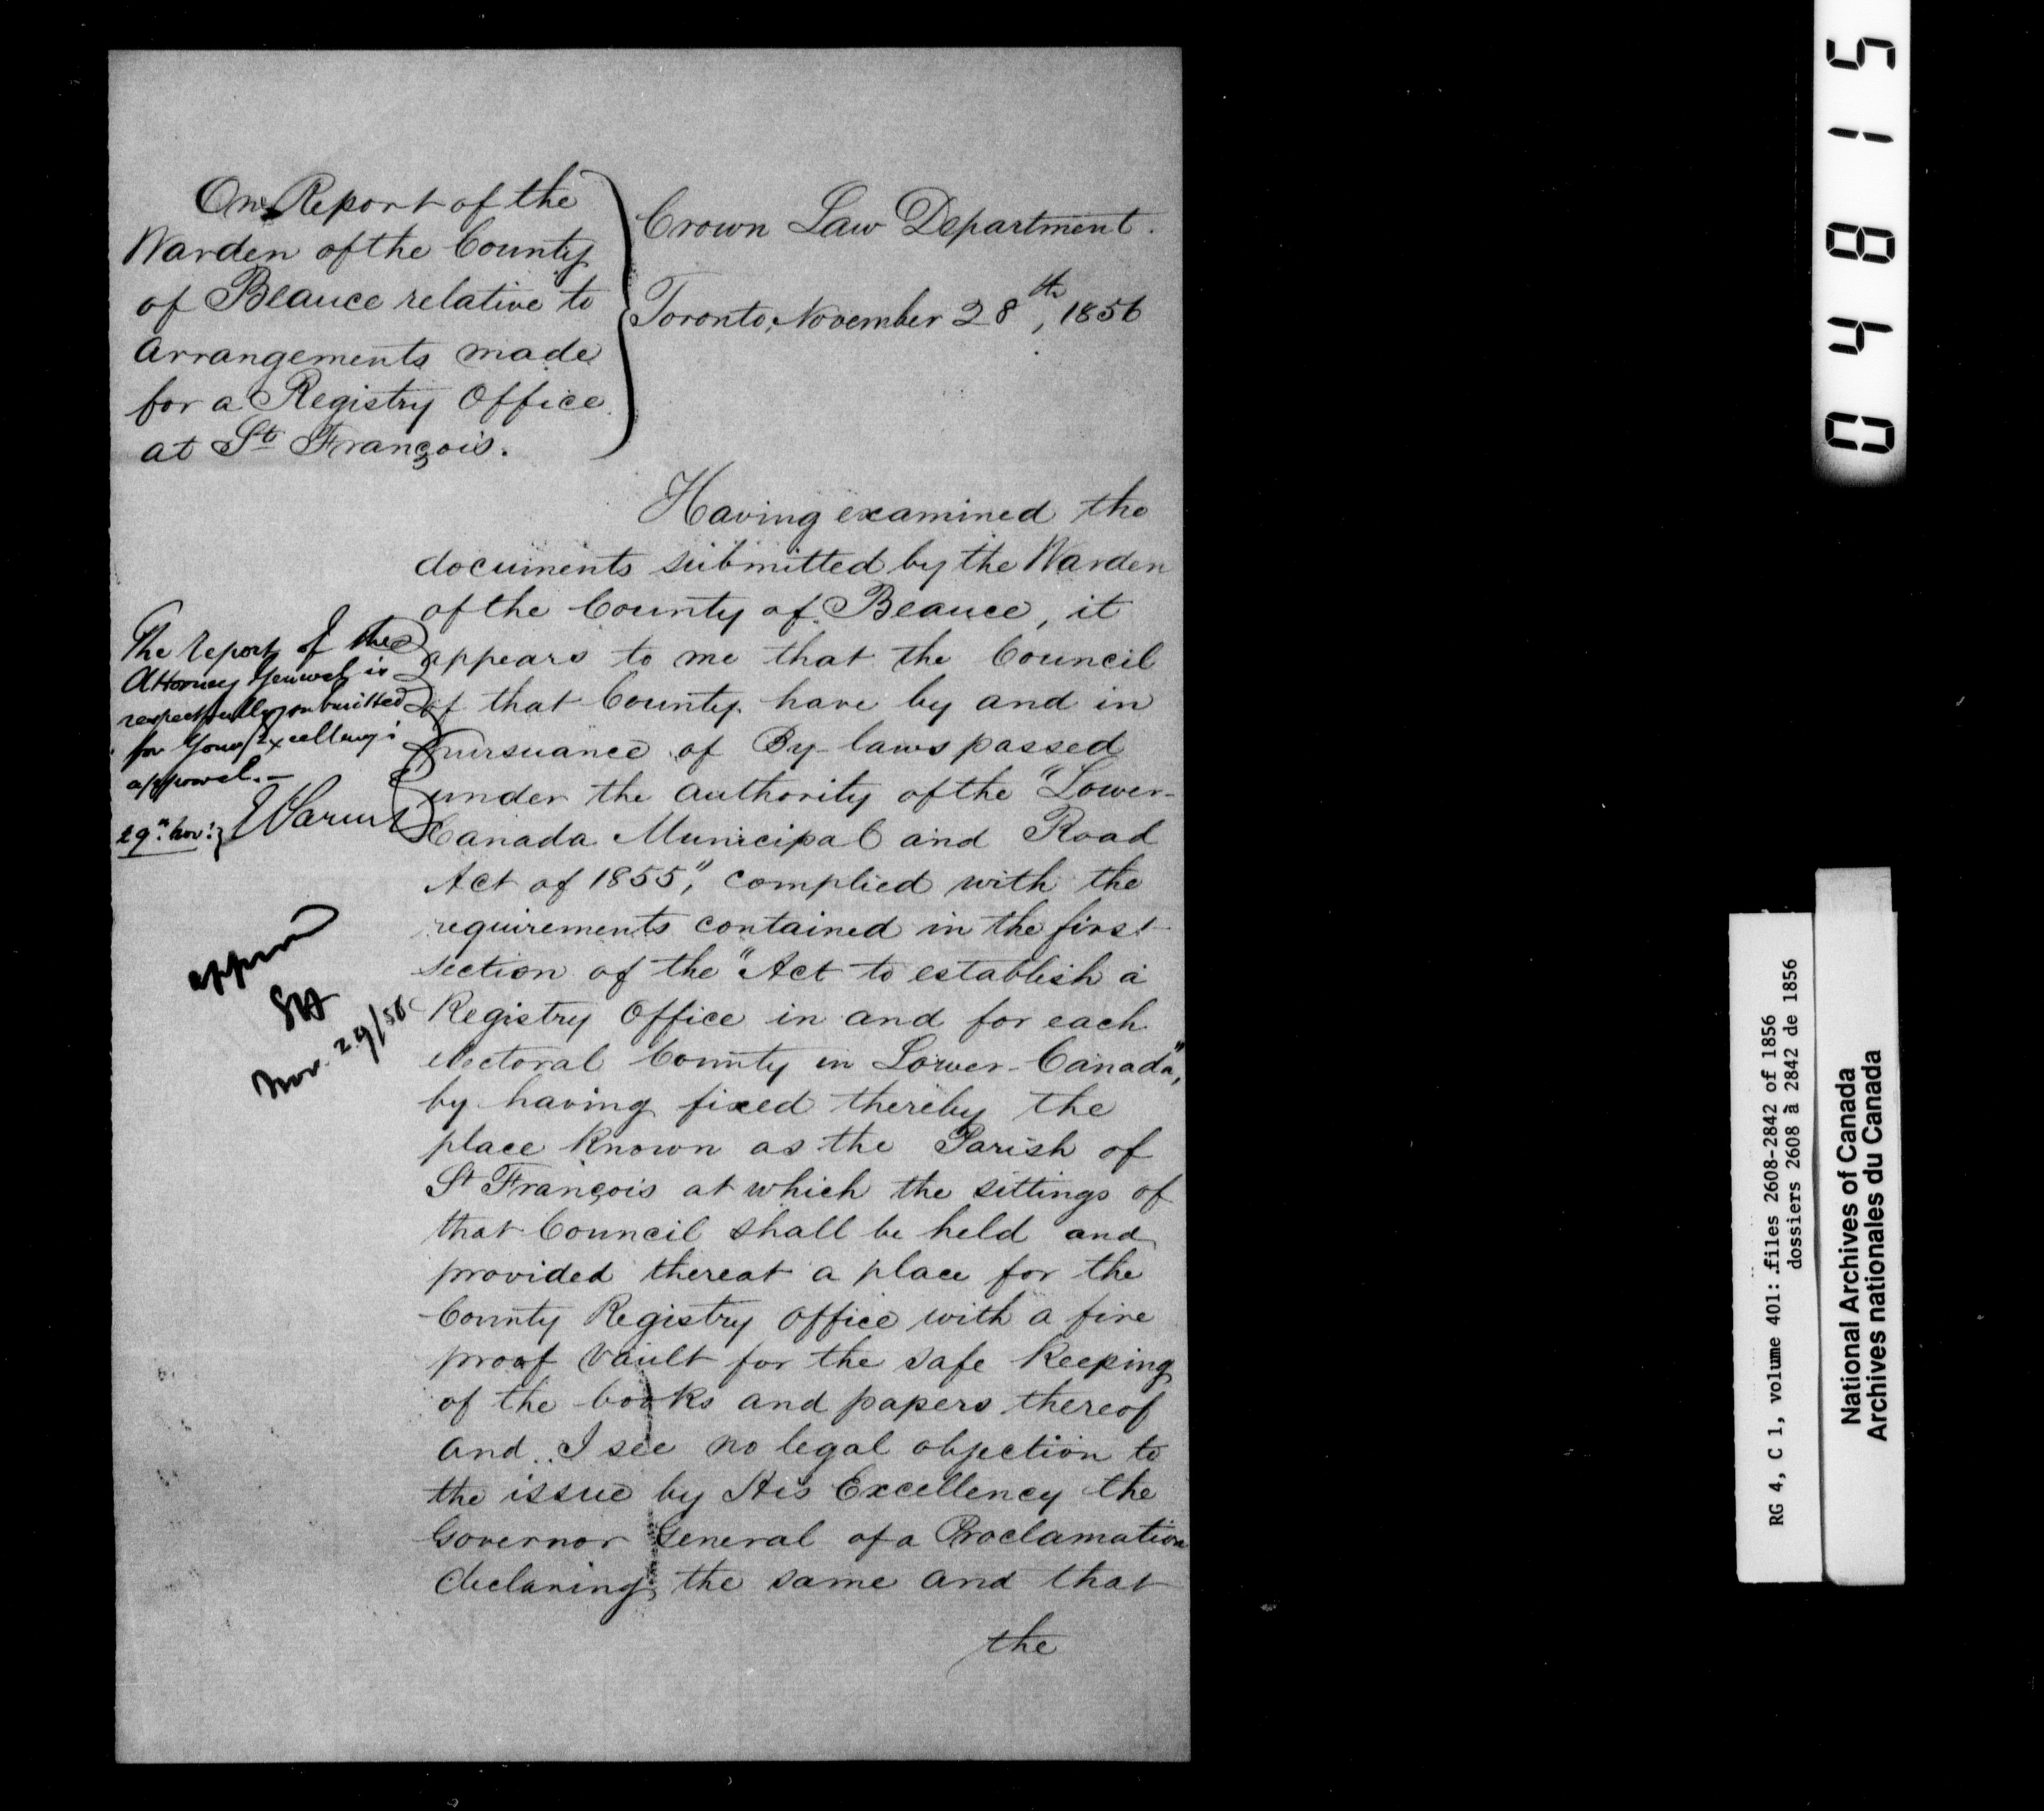 On Report of the
Warden of the County
of Beauce relative to
Arrangements made
for a Registry Office
at St François.
Crown Law Department.
Toronto, November 28th, 1856
Having examined the
documents submitted by the Warden
of the County of Beauce, it
appears to me that the Council
of that County have by and in
pursuance of By-laws passed
under the authority of the "Lower-
Canada Municipal and Road
Act of 1855", complied with the
requirements contained in the first
section of the "Act to establish a
Registry Office in and for each
electoral County in Lower-Canada",
by having fixed thereby the
place known as the Parish of
St François at which the sittings of
that Council shall be held and
provided thereat a place for the
County Registry Office with a fire
proof vault for the safe keeping
of the books and papers thereof
and I see no legal objection to
the issue by His Excellency the
Governor General of a Proclamation
declaring the same and that
the
The report of the
Attorney General is
respectfully submitted
for Your Excellency's
approval.—
29th Nov:
appd
Nov. 29/56
04815
RG 4, C 1, volume 401: files 2608-2842 of 1856
dossiers 2608 à 2842 de 1856
National Archives of Canada
Archives nationales du Canada